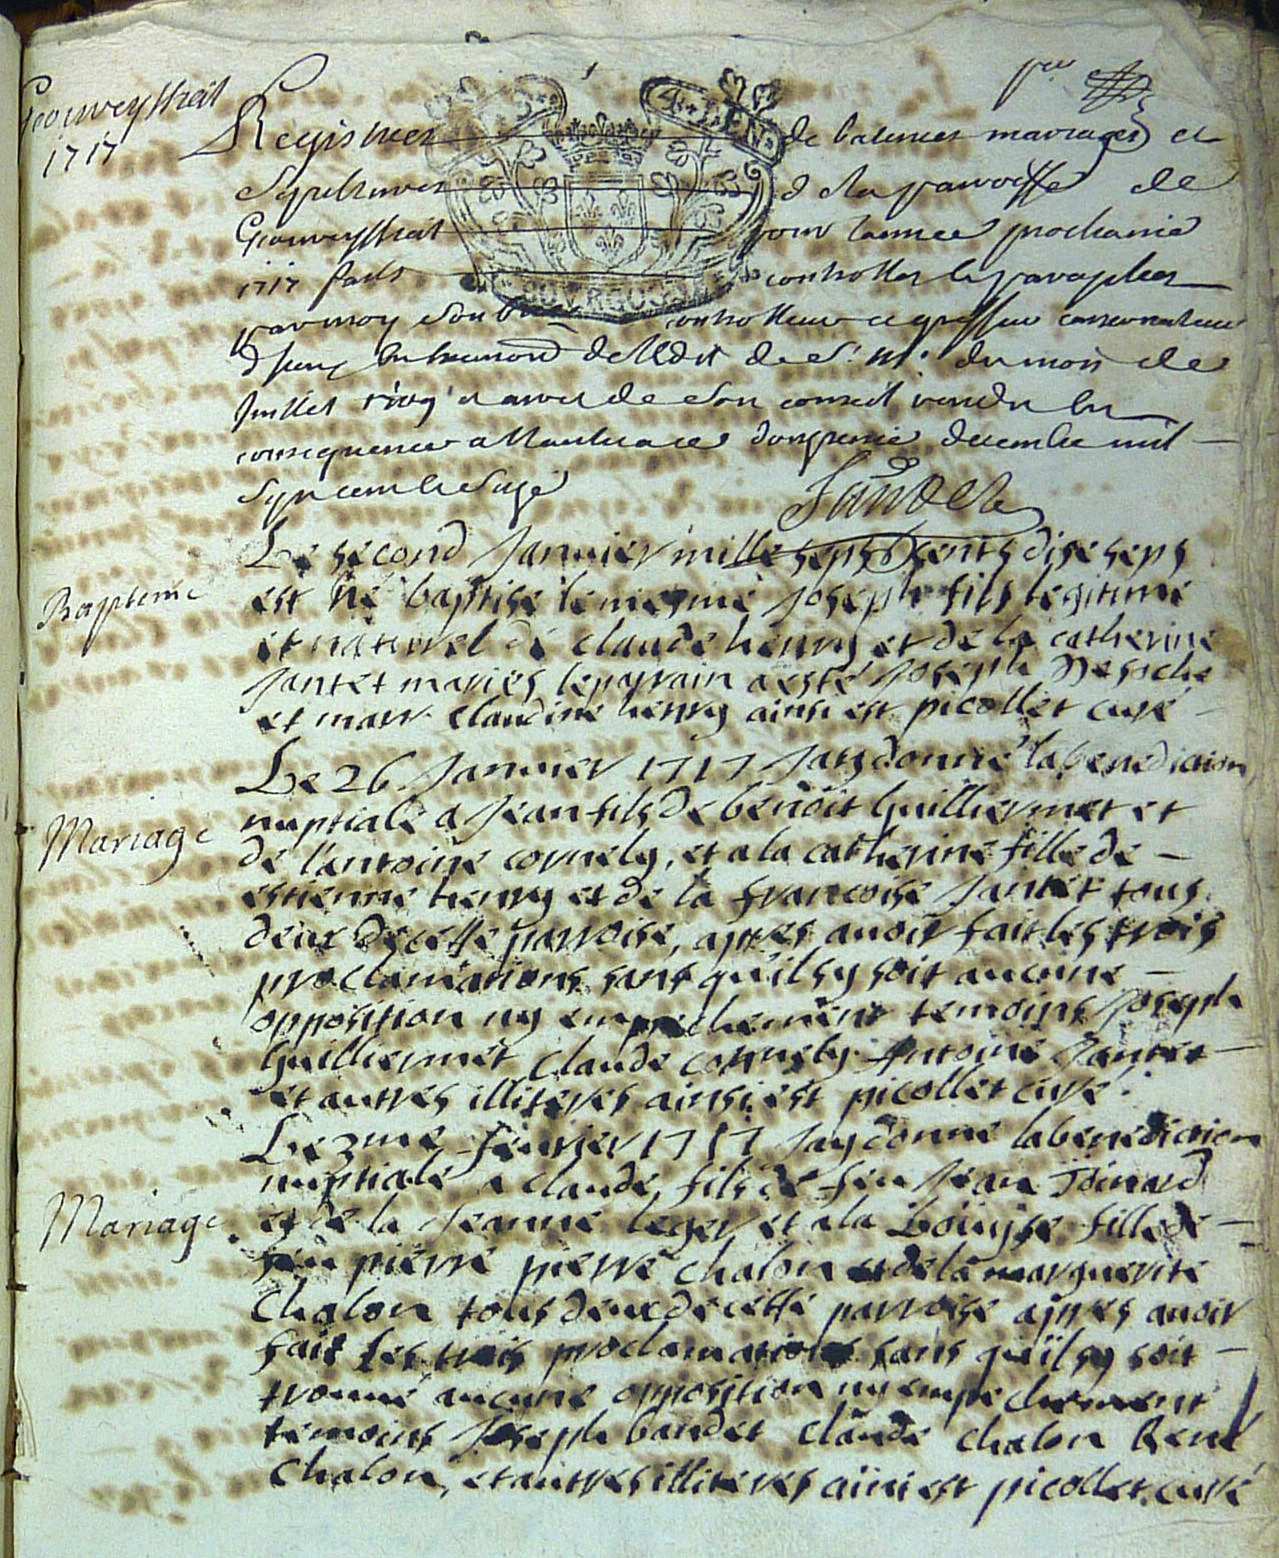 1717
pre
Registres de batemes mariages et
Sepultures de la parroisse de
pour lannée prochaine
1717 controller le paraphes
par moy controlleur greffier conservateur
de l'Edit de du mois de
Juillet et arrest de son conseil rendu en
consequence decembre mil
Sept cent Seize
Bapteme
Le second Janvier mille sept cents dise sept
est né baptise le mesme Joseph fils legitime
et naturel de claude henry et de la catherine
Jantet mariés, le parrain a esté Joseph
et marr. claudine henry ainsi est picollet curé
Mariage
Le 26 Janvier 1717 Jay donné la benediction
nuptiale a Jean fils de benoit Guilliermet et
de l'antoine cornely, et a la catherine fille de
estienne henry et de la francoise Jantet tous
deux de cette parroise, apres avoir fait les trois
proclamations sans qu'il sy soit aucune
opposition ny empechement temoins Joseph
Guilliermet Claude cornely Antoine Jantet
et autres illiteres ainsi est picollet curé.
Mariage
Le 3me fevrier 1717 Jay donné la benediction
nuptiale a claude, fils de feu Jean Joinard
et de la Jeanne leger et a la Louyse fille de
feu pierre pierre chalon et de la marguerite
Chalon tous deux de cette parroise apres avoir
fait les trois proclamations sans qu'il sy soit
trouvé aucune opposition ny empechement
temoins Joseph baudet claude chalon René
Chalon, et autres illiteres ainsi est picollet curé